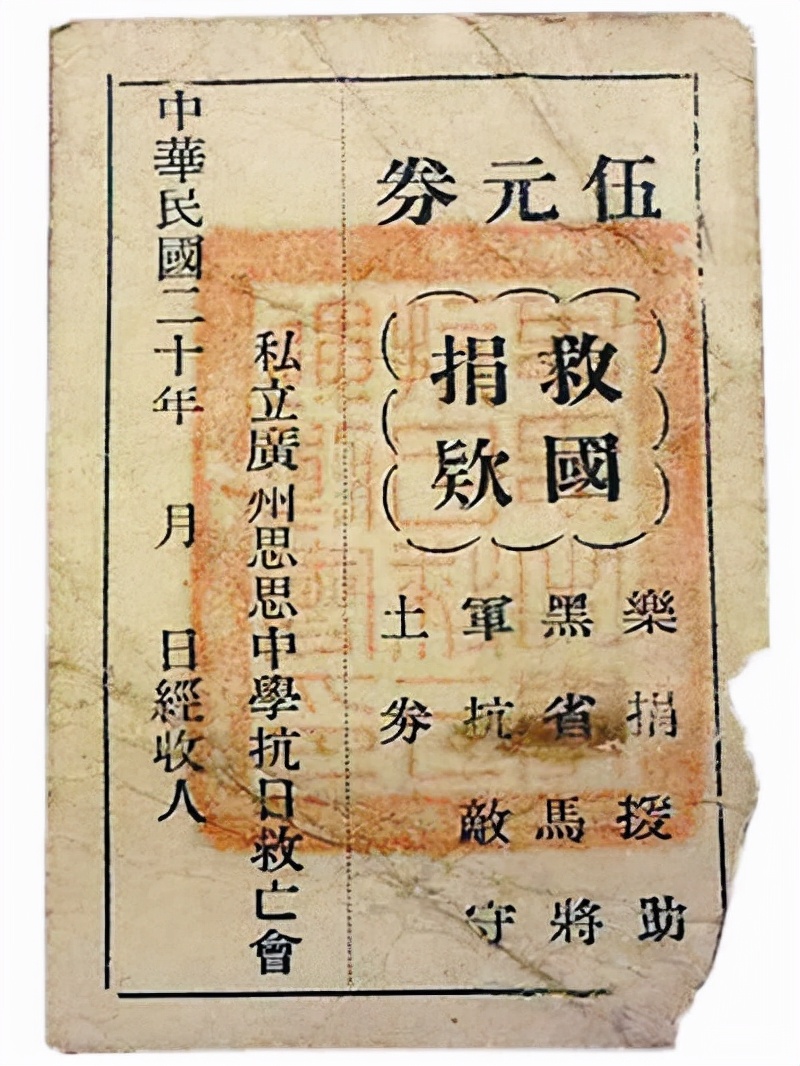 伍元券
救國
捐欵
樂捐援助
黑省馬將
軍抗敵守
土券
私立廣州思思中學抗日救亡會
中華民國二十年 月 日經收人